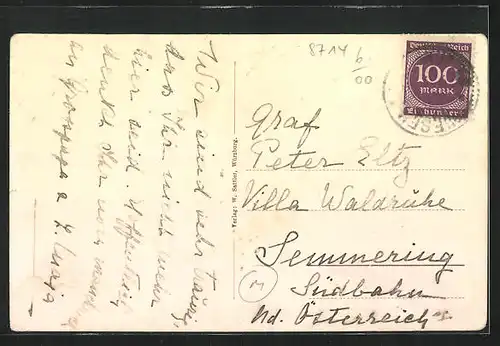 Wir sind sehr traurig,
dass Ihr nicht mehr
hier seid. Hoffentlich
denkt Ihr noch
Grosspapa &
8714
00
Deutsches Reich
100
MARK
Einhundert
Verlag: W. Sattler, Würzburg.
Graf
Peter Eltz
Villa Waldruhe
Semmering
Südbahn
Nd. Österreich
M